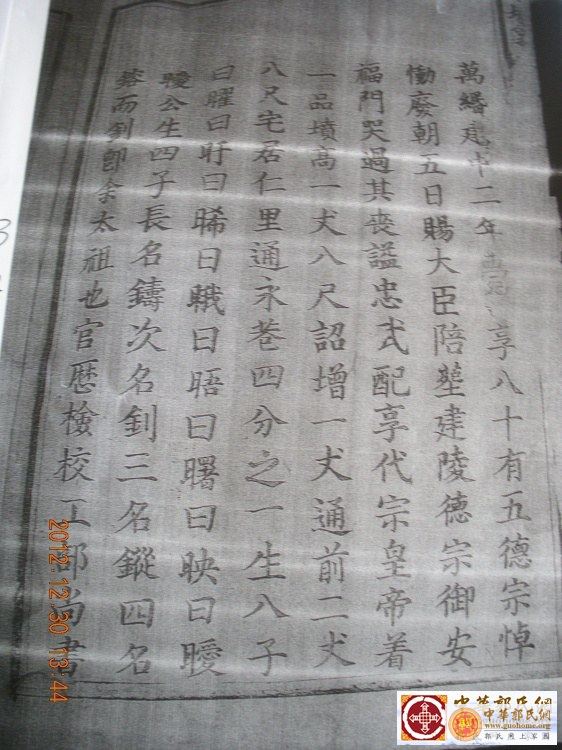 萬緡建中二年享八十有五德宗悼
慟廢朝五日賜大臣陪塟建陵德宗御安
福門哭過其喪謚忠武配享代宗皇帝着
一品墳高一丈八尺詔增一丈通前二丈
八尺宅居仁里通永巷四分之一生八子
曰曜曰旴曰晞曰曰晤曰曙曰映曰曖
曖公生四子長名鑄次名釗三名鏦四名
而釗即余太祖也官歴檢校工部尚書
2012.12.30 13:44
中華郭氏網
中華郭氏網
www.guohome.org
郭氏網上家園